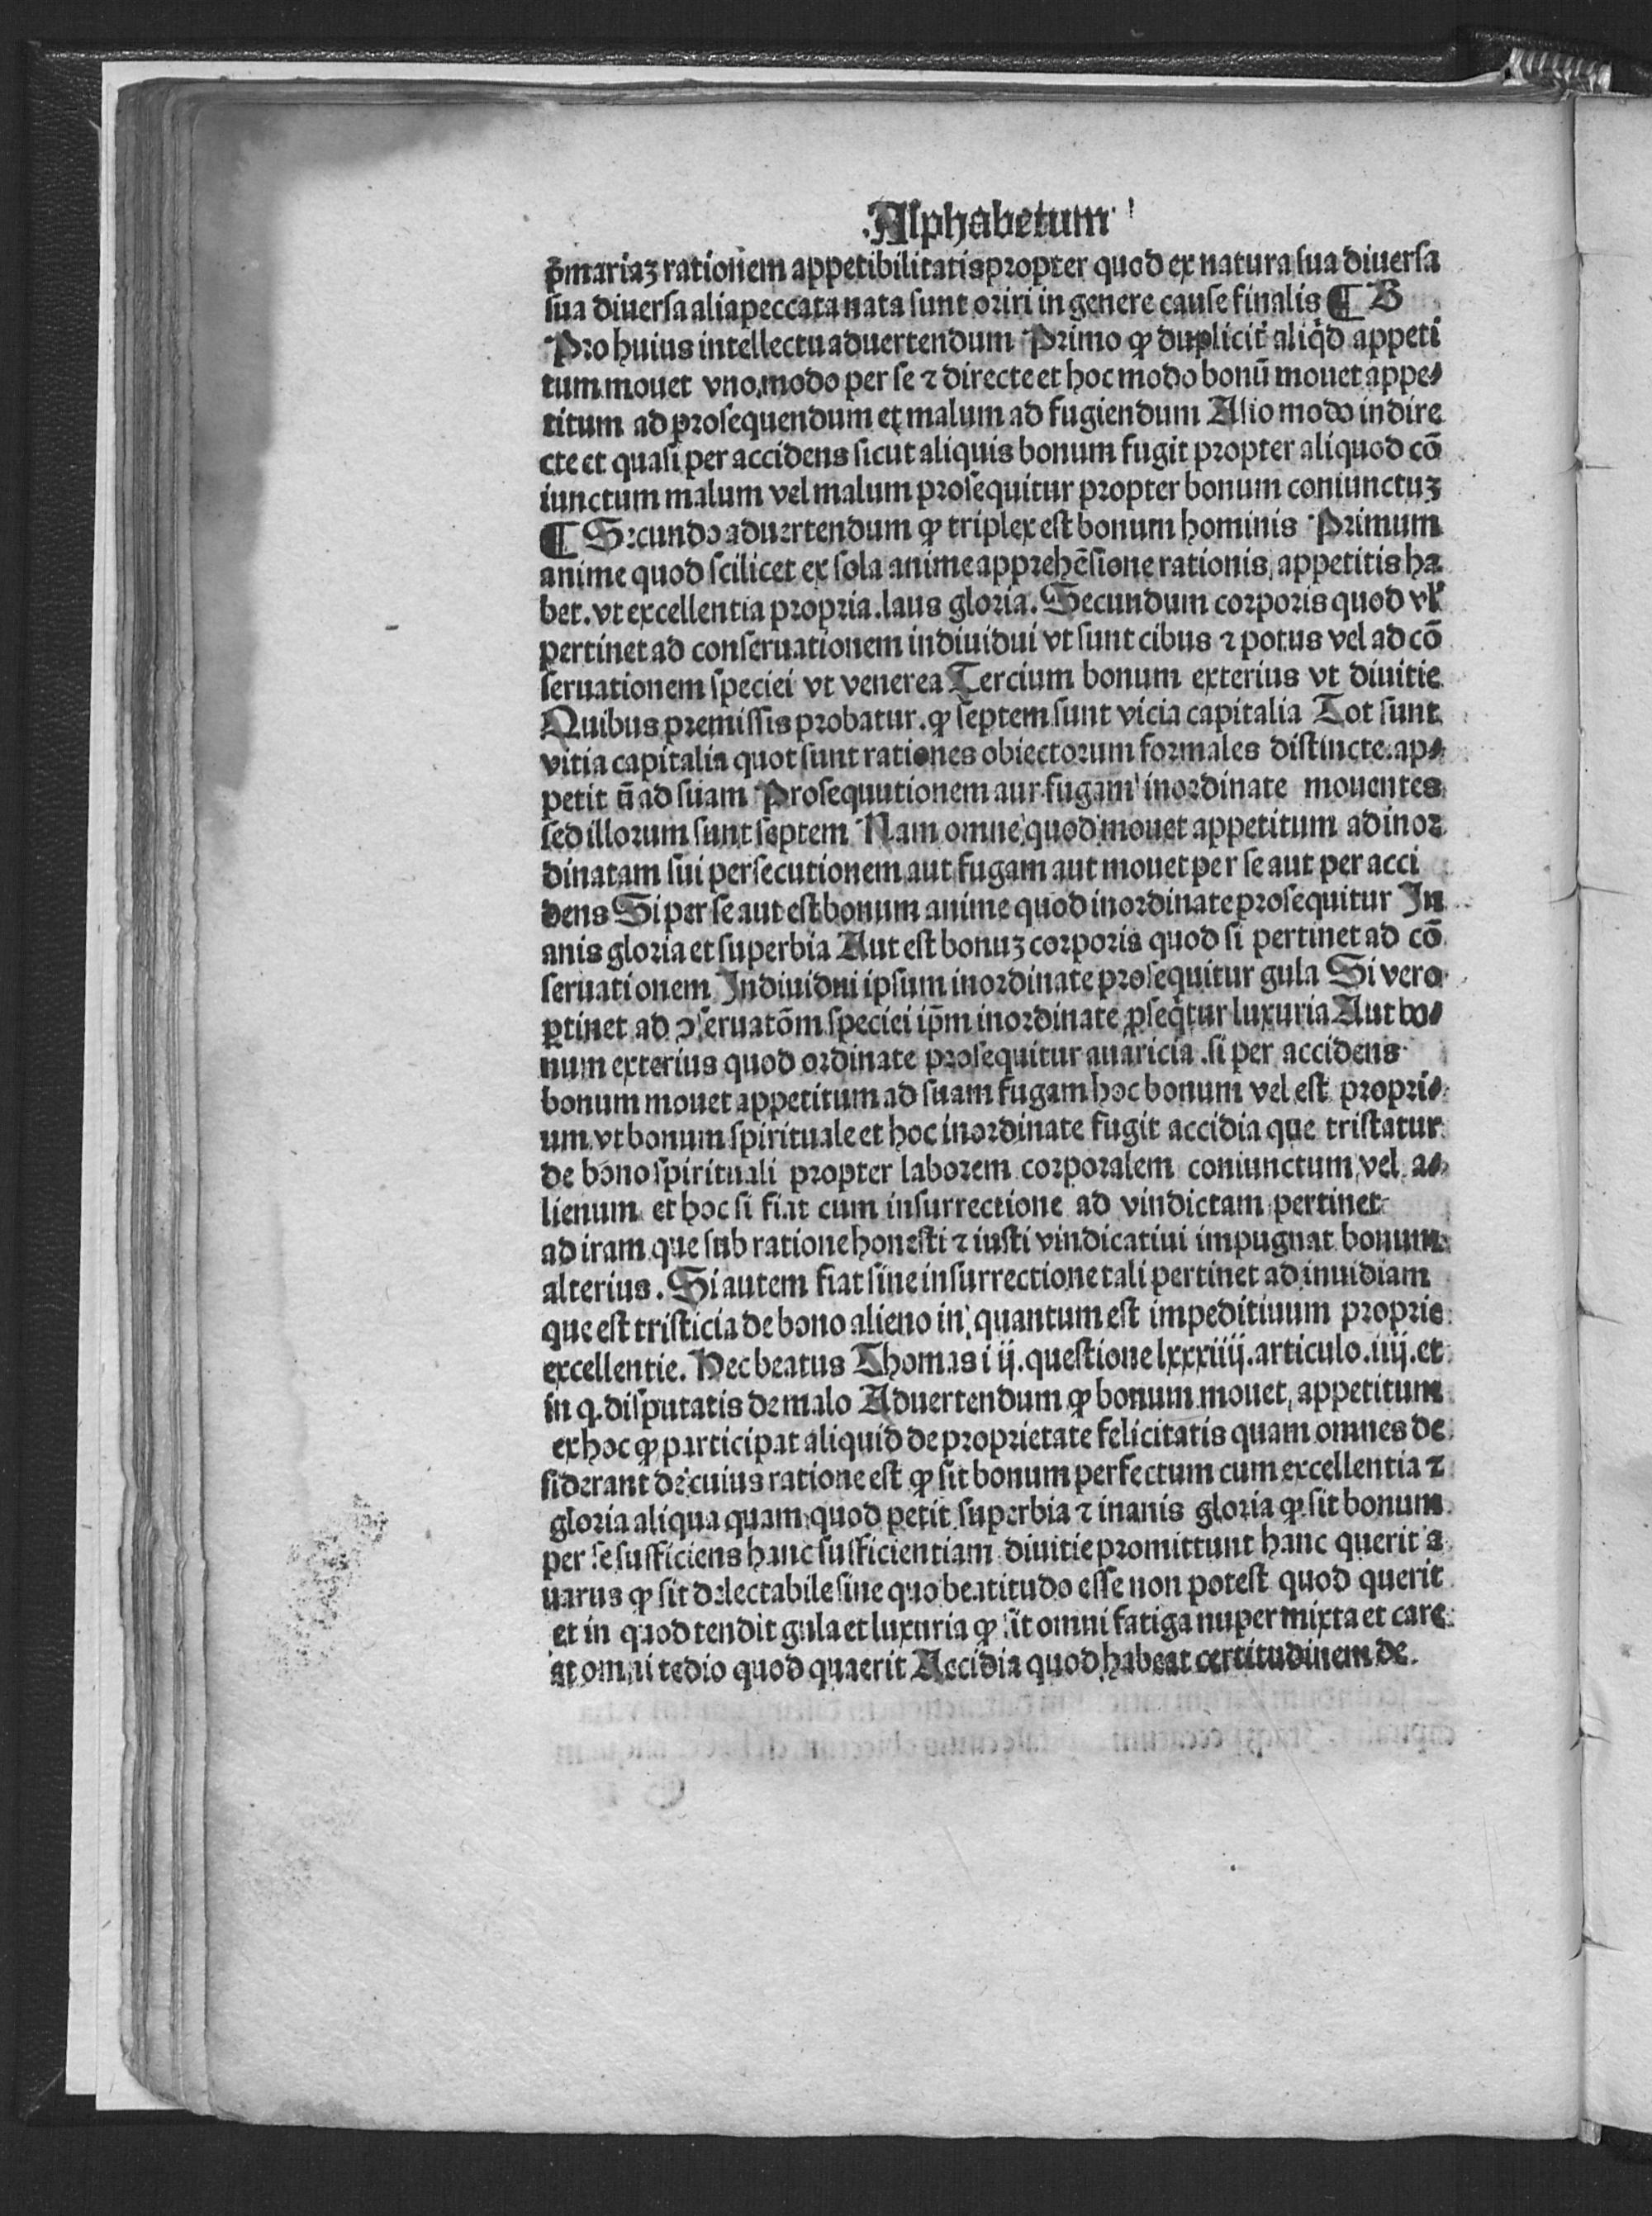 .Alphabetum
p̄mariaꝫ rationem appetibilitatis propter quod ex natura sua diuersa
sua diuersa alia peccata nata sunt oriri in genere cause finalis ¶ B
Pro huius intellectu aduertendum Primo ꝙ duplicit̄ aliq̄d appeti
tum mouet vno modo per se ⁊ directe et hoc modo bonū mouet appe⸗
titum ad prosequendum et malum ad fugiendum Alio modo indire
cte et quasi per accidens sicut aliquis bonum fugit propter aliquod cō
iunctum malum vel malum prosequitur propter bonum coniunctuꝫ
¶ Secundo aduertendum ꝙ triplex est bonum hominis Primum
anime quod scilicet ex sola anime apprehēsione rationis appetitis ha
bet. vt excellentia propria. laus gloria. Secundum corporis quod vľ
pertinet ad conseruationem indiuidui vt sunt cibus ⁊ potus vel ad cō
seruationem speciei vt venerea Tercium bonum exterius vt diuitie
Quibus premissis probatur. ꝙ septem sunt vicia capitalia Tot sunt
vitia capitalia quot sunt rationes obiectorum formales distincte ap⸗
petit ū ad suam Prosequutionem aur fugam inordinate mouentes
sed illorum sunt septem Nam omne quod mouet appetitum ad inor
dinatam sui persecutionem aut fugam aut mouet per se aut per acci
dens Si per se aut est bonum anime quod inordinate prosequitur In
anis gloria et superbia Aut est bonuꝫ corporis quod si pertinet ad cō
seruationem Indiuidui ipsum inordinate prosequitur gula Si vero
ꝑtinet ad ꝯseruatōm speciei ip̄m inordinate ꝓseq̄tur luxuria Aut bo⸗
num exterius quod ordinate prosequitur auaricia .si per accidens
bonum mouet appetitum ad suam fugam hoc bonum vel est propri⸗
um vt bonum spirituale et hoc inordinate fugit accidia que tristatur
de bono spirituali propter laborem corporalem coniunctum vel a⸗
lienum et hoc si fiat cum insurrectione ad vindictam pertinet
ad iram que sub ratione honesti ⁊ iusti vindicatiui impugnat bonum
alterius. Si autem fiat sine insurrectione tali pertinet ad inuidiam
que est tristicia de bono alieno in quantum est impeditiuum proprie
excellentie. Hec beatus Thomas i ij. questione lxxxiiij. articulo. iiij. et
in q. disputatis de malo Aduertendum ꝙ bonum mouet appetitum
ex hoc ꝙ participat aliquid de proprietate felicitatis quam omnes de
siderant de cuius ratione est ꝙ sit bonum perfectum cum excellentia ⁊
gloria aliqua quam quod petit superbia ⁊ inanis gloria ꝙ sit bonum
per se sufficiens hanc sufficientiam diuitie promittunt hanc querit a
uarus ꝙ sit delectabile sine quo beatitudo esse non potest quod querit
et in quod tendit gula et luxuria ꝙ sit omni fatiga nuper mixta et care
at omni tedio quod quaerit Accidia quod habeat certitudinem de.